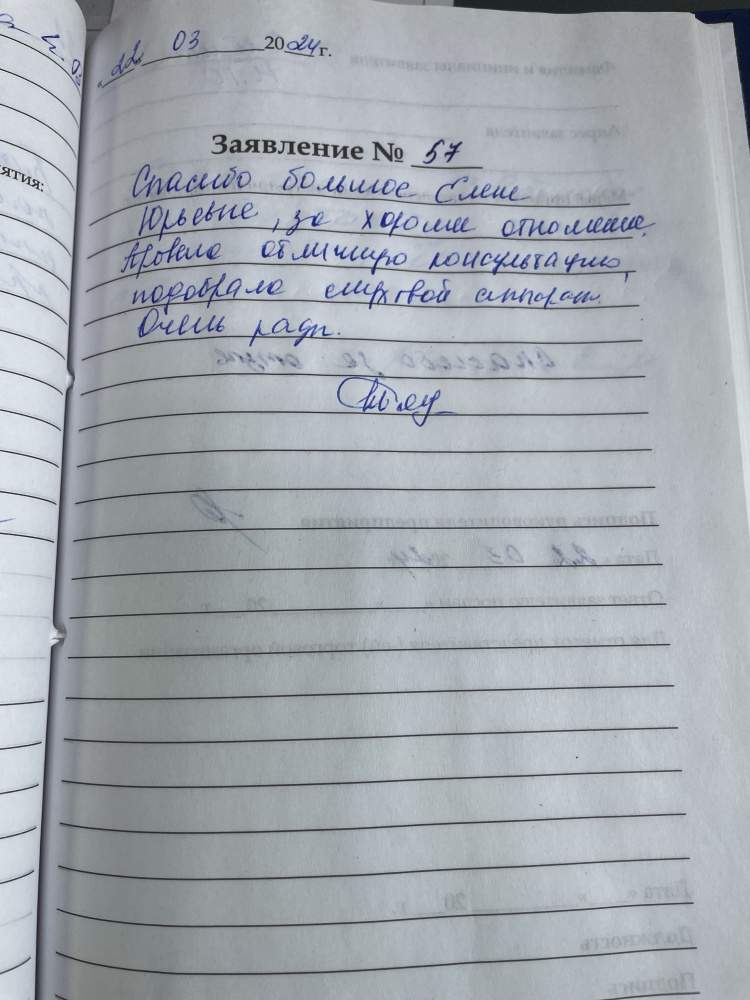 «22» 03 2024 г.
Заявление № 57
Спасибо большое Елене
Юрьевне, за хорошее отношение.
Провела отличную консультацию,
подобрала слуховой аппарат.
Очень рады.
ятия: